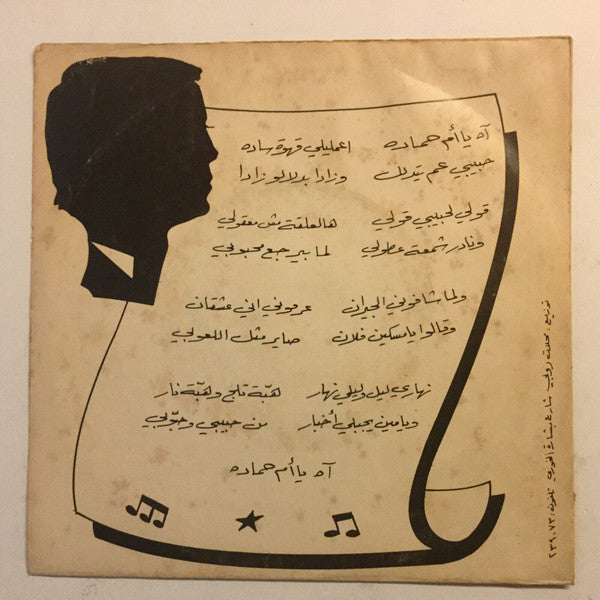 آه يا أم حماده اعمليلي قهوة ساده
حبيبي عم يتدلل وزادا بدلالو زادا
قولي لحبيبي قولي هالعلقة مش معقولي
ونادر شمعة عطولي لما بيرجع محبوبي
ولما شافوني الجيران عرفوني اني عشقان
وقالوا يا مسكين فلان صاير مثل اللعوبي
نهاري ليل وليلي نهار هبّة تلج وهبّة نار
ويا مين يجبلي أخبار من حبيبي وجوّبي
آه يا أم حماده
توزيع، محلات روبي شارع بشارة الخوري تلفون: ٢٣٩٠٧٣